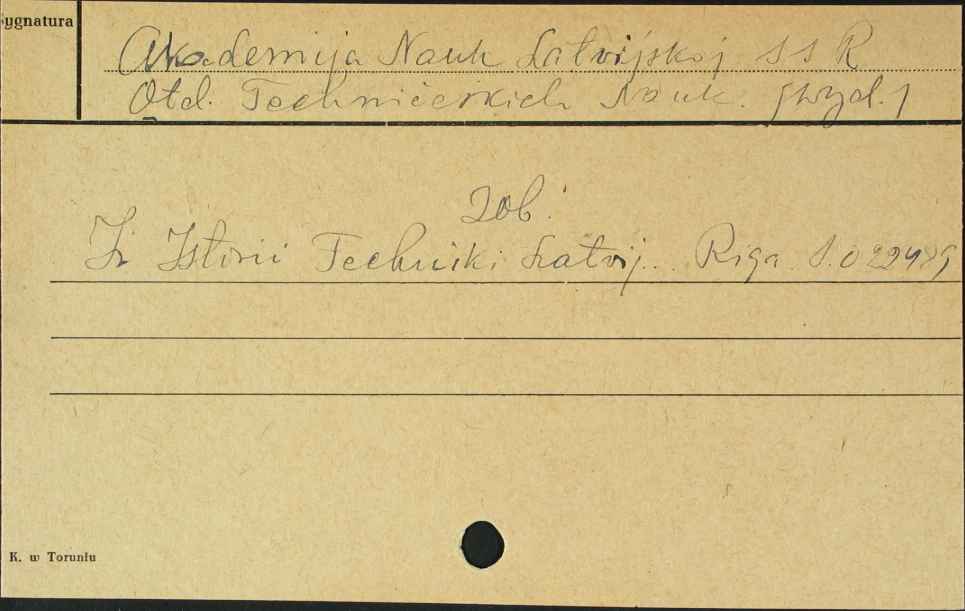 ygnatura
Akademija Nauk Latvijskoj SSR
Otd. Techničeskich Nauk. [wyd.]
zob.
Iz Istorii Techniki Latvij. Riga S.022489
K. w Toruniu